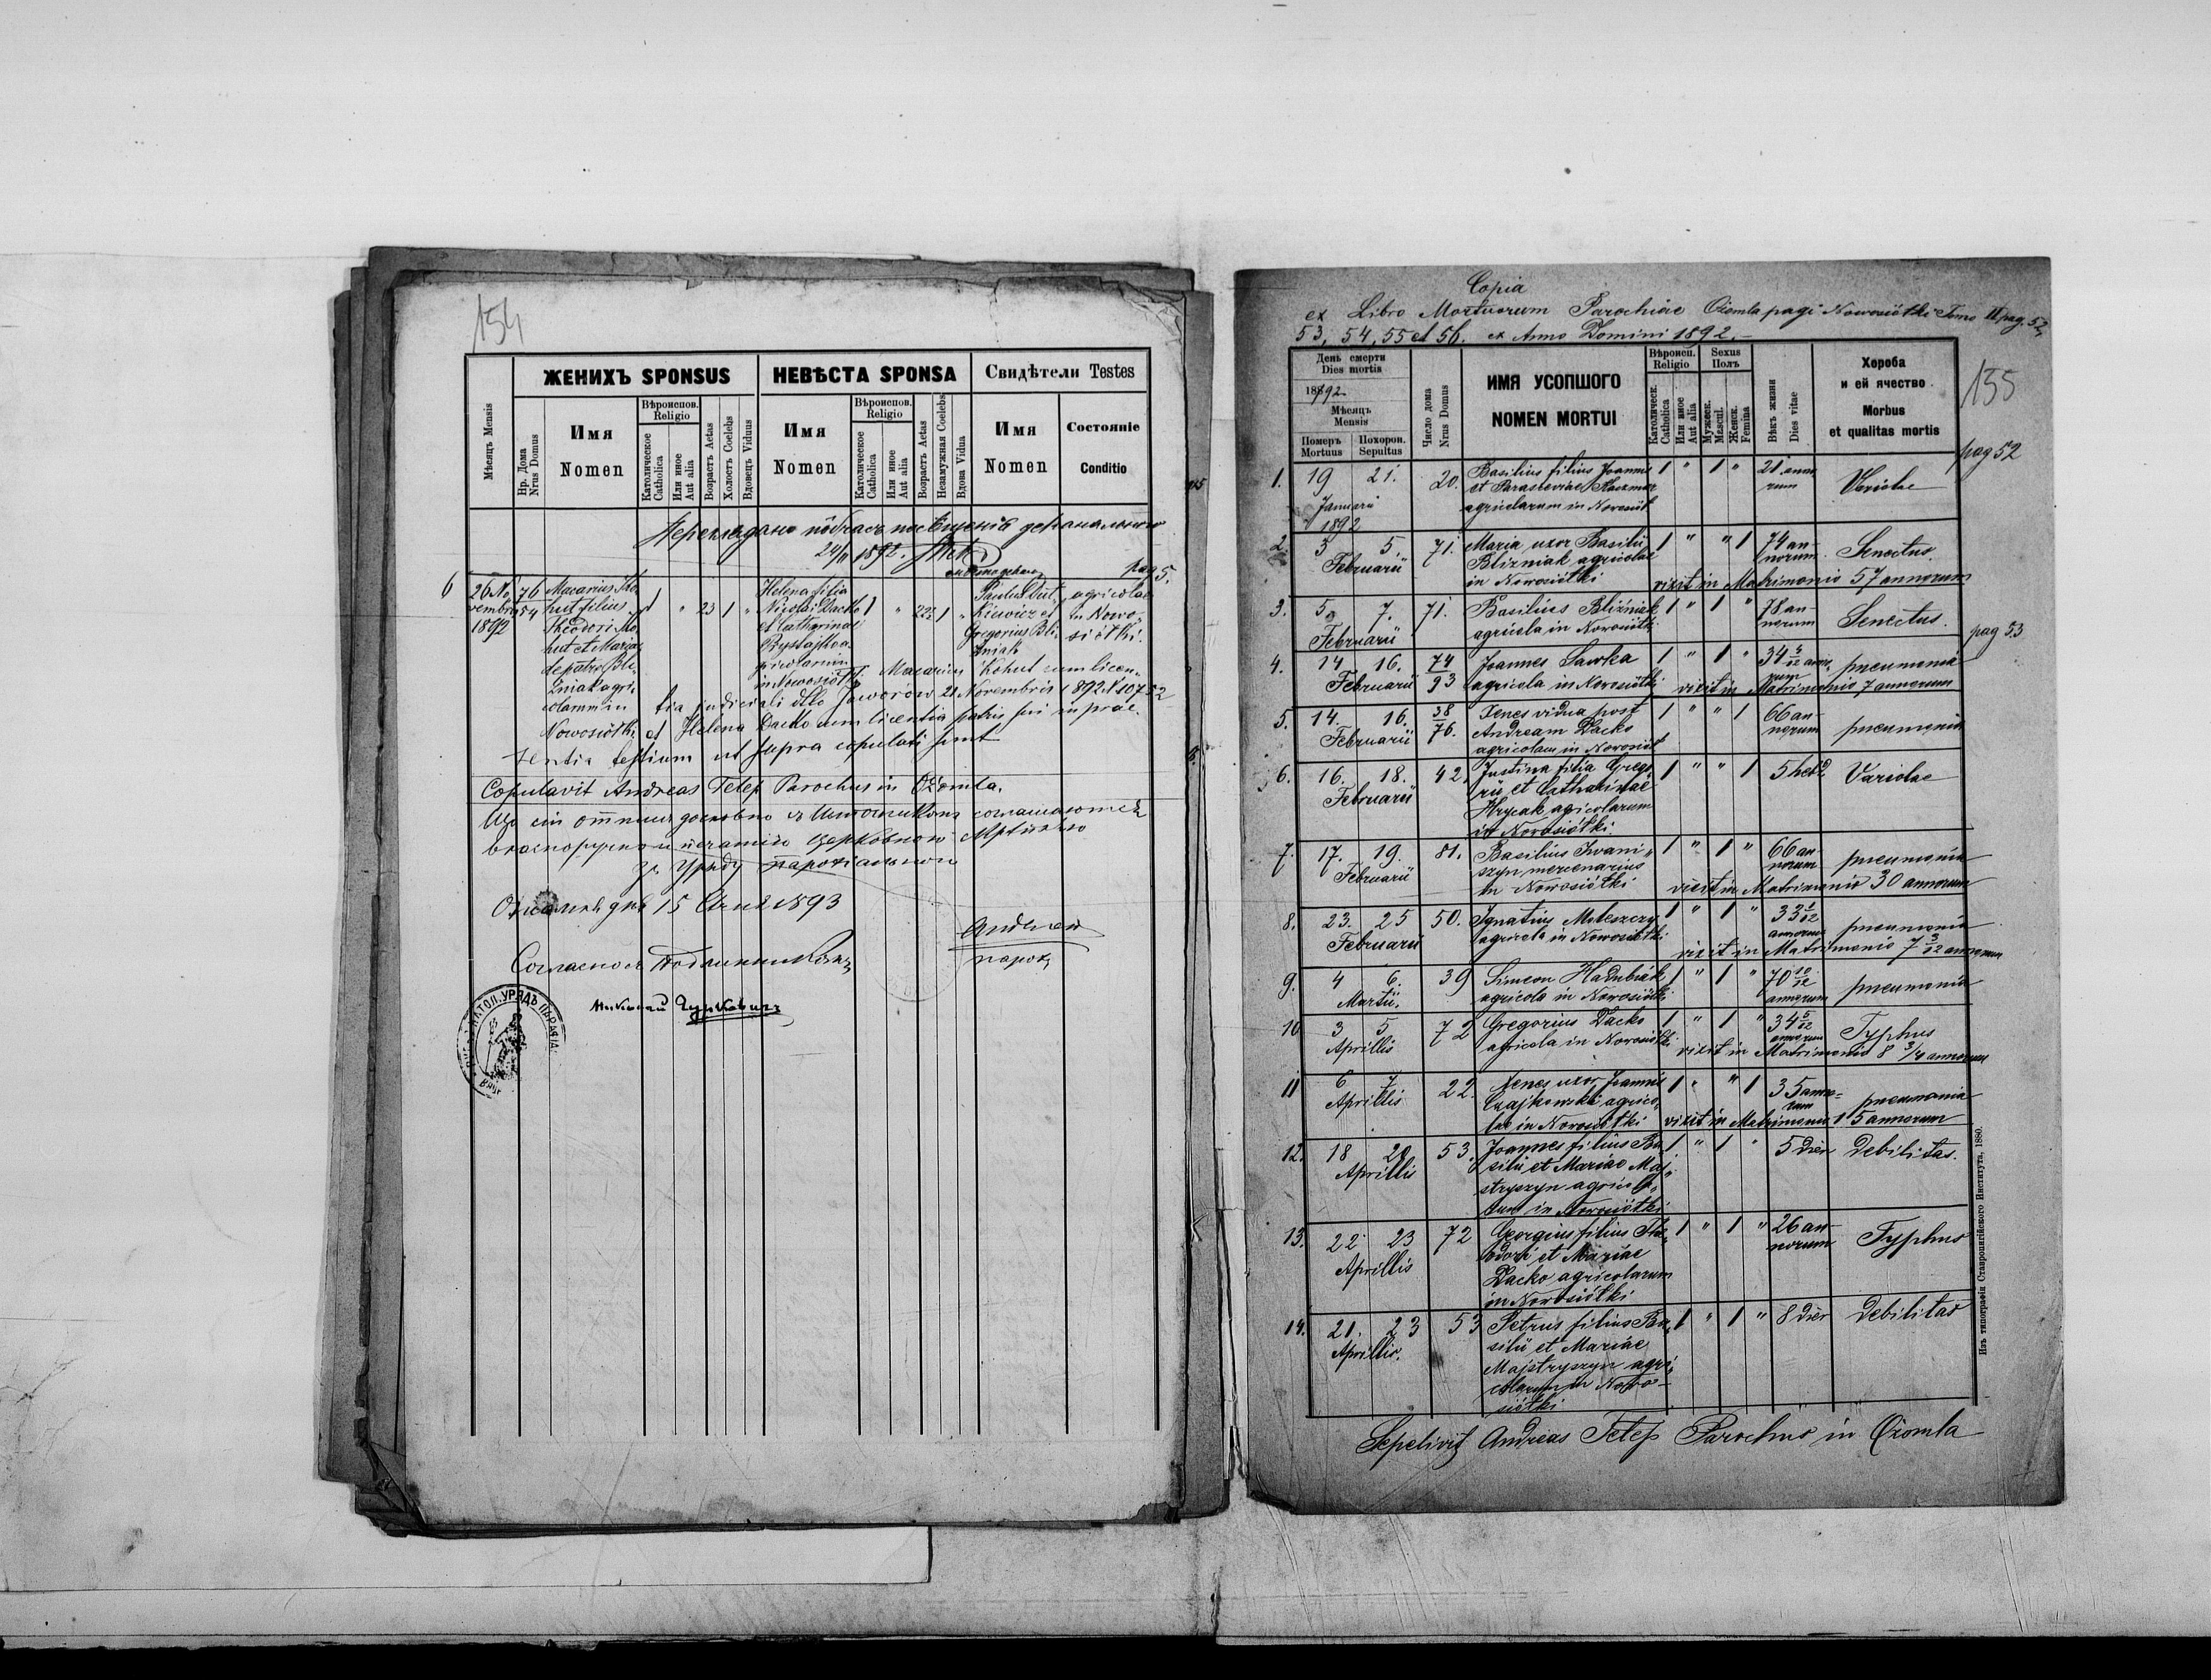 154
ЖЕНИХЪ SPONSUS
НЕВѢСТА SPONSA
Свидѣтели Testes
Мѣсяцъ Mensis
Нр. Дома
Nrus Domus
Имя
Nomen
Вѣроиспов.
Religio
Католическое
Catholica
Или иное
Aut alia
Возрастъ Aetas
Холостъ Coelebs
Вдовецъ Viduus
Имя
Nomen
Вѣроиспов.
Religio
Католическое
Catholica
Или иное
Aut alia
Возрастъ Aetas
Незамужная Coelebs
Вдова Vidua
Имя
Nomen
Состояніе
Conditio
24/11 1892.
pag 5.
6
26 No
vembris
1892
76
54
Macarius Ko
hut filius
Theodori Ko
hut et Maria
de patre Bli
źniak agri
colarum in
Nowosiółki
1 " 23 1 "
Helena filia
Nicolai Dacko
et Catharinae
in Nowosiółki
1 " 22 1 "
Paulus Dut
kiewicz et
Gregorius Bli
źniak
agricolae
in Nowo-
siółki.
Macarius Kohut cum licen-
tia judiciali dto Jaworów 21 Novembris 1892 N 10752
et Helena Dacko cum licentia patris sui in prae-
sentia testium ut supra copulati sunt
Copulavit Andreas Telep Parochus in Ożomla.
15 1893
Андрей
парох
Николай
Copia
ex Libro Mortuorum Parochiae Ożomla pagi Nowosiółki Tomo II pag. 52,
53, 54, 55 et 56. ex Anno Domini 1892.-
155
День смерти
Dies mortis
1892
Мѣсяцъ
Mensis
Померъ
Mortuus
Похорон.
Sepultus
Число дома
Nrus Domus
ИМЯ УСОПШОГО
NOMEN MORTUI
Вѣроисп.
Religio
Католическ.
Catholica
Или иное
Aut alia
Sexus
Полъ
Мужеск.
Mascul.
Женск.
Femina
Вѣкъ жизни
Dies vitae
Хороба
и ей ячество
Morbus
et qualitas mortis
pag 52
1. 19 21. 20. Basilius filius Joannis 1 " 1 " 21 anno
Januarii et Parasceviae Kaczmar rum Variolae
1892 agricolarum in Nowosiół
2. 3 5 71. Maria uxor Basilii 1 " " 1 74 an- Senectus
Februarii Blizniak agricolae norum
in Nowosiółki vixit in Matrimonio 57 annorum
3. 5 7. 71. Basilius Bliźniak 1 " 1 " 78 an- Senectus.
Februarii agricola in Nowosiółki norum
pag 53
4. 14 16. 74/93 Joannes Sawka 1 " 1 " 34 5/12 anno- pneumonia
rum
Februarii agricola in Nowosiółki vixit in Matrimonio 7 annorum
5. 14. 16. 38/76. Xenes vidua post 1 " " 1 66 an- pneumonia
Februarii Andream Dacko norum
agricolam in Nowosiół
6. 16. 18. 42. Justina filia Grego 1 " " 1 5 hebd Variolae
Februarii rii et Catharinae
Hrycak agricolarum
in Nowosiółki
7. 17. 19. 81. Basilius Iwani- 1 " 1 " 66 an- pneumonia
Februarii szyn mercenarius norum
in Nowosiółki vixit in Matrimonio 30 annorum
8. 23. 25 50. Ignatius Moleszczy 1 " 1 " 33 1/12 pneumonia
annorum
Februarii agricola in Nowosiółki vixit in Matrimonio 7 3/12 annorum
9. 4 6. 39 Simeon Hadubiak 1 " 1 " 70 10/12 pneumonia
Martii. agricola in Nowosiółki annorum
10 3 5 72 Gregorius Dacko 1 " 1 " 34 5/12 Typhus
annorum
Aprillis agricola in Nowosiółki vixit in Matrimonio 8 3/4 annorum
11 6 7 22. Xenes uxor Joannis 1 " " 1 35 anno- pneumonia
rum
Aprillis Czajkowski agrico-
lae in Nowosiółki vixit in Matrimonio 15 annorum
12. 18 20 53. Joannes filius Ba 1 " 1 " 5 dier Debilitas.
Aprillis silii et Mariae Maj-
stryszyn agricola-
rum in Nowosiółki
13. 22 23 72 Georgius filius The- 1 " 1 " 26 an- Typhus
Aprillis odori et Mariae norum
Dacko agricolarum
in Nowosiółki
14. 21. 23 53 Petrus filius Ba- 1 " 1 " 8 dier Debilitas
Aprillis. silii et Mariae
Majstryszyn agri-
colarum in Nowo-
siółki
Sepelivit Andreas Telep Parochus in Ożomla
Изъ типографіи Ставропигійского Института, 1880.